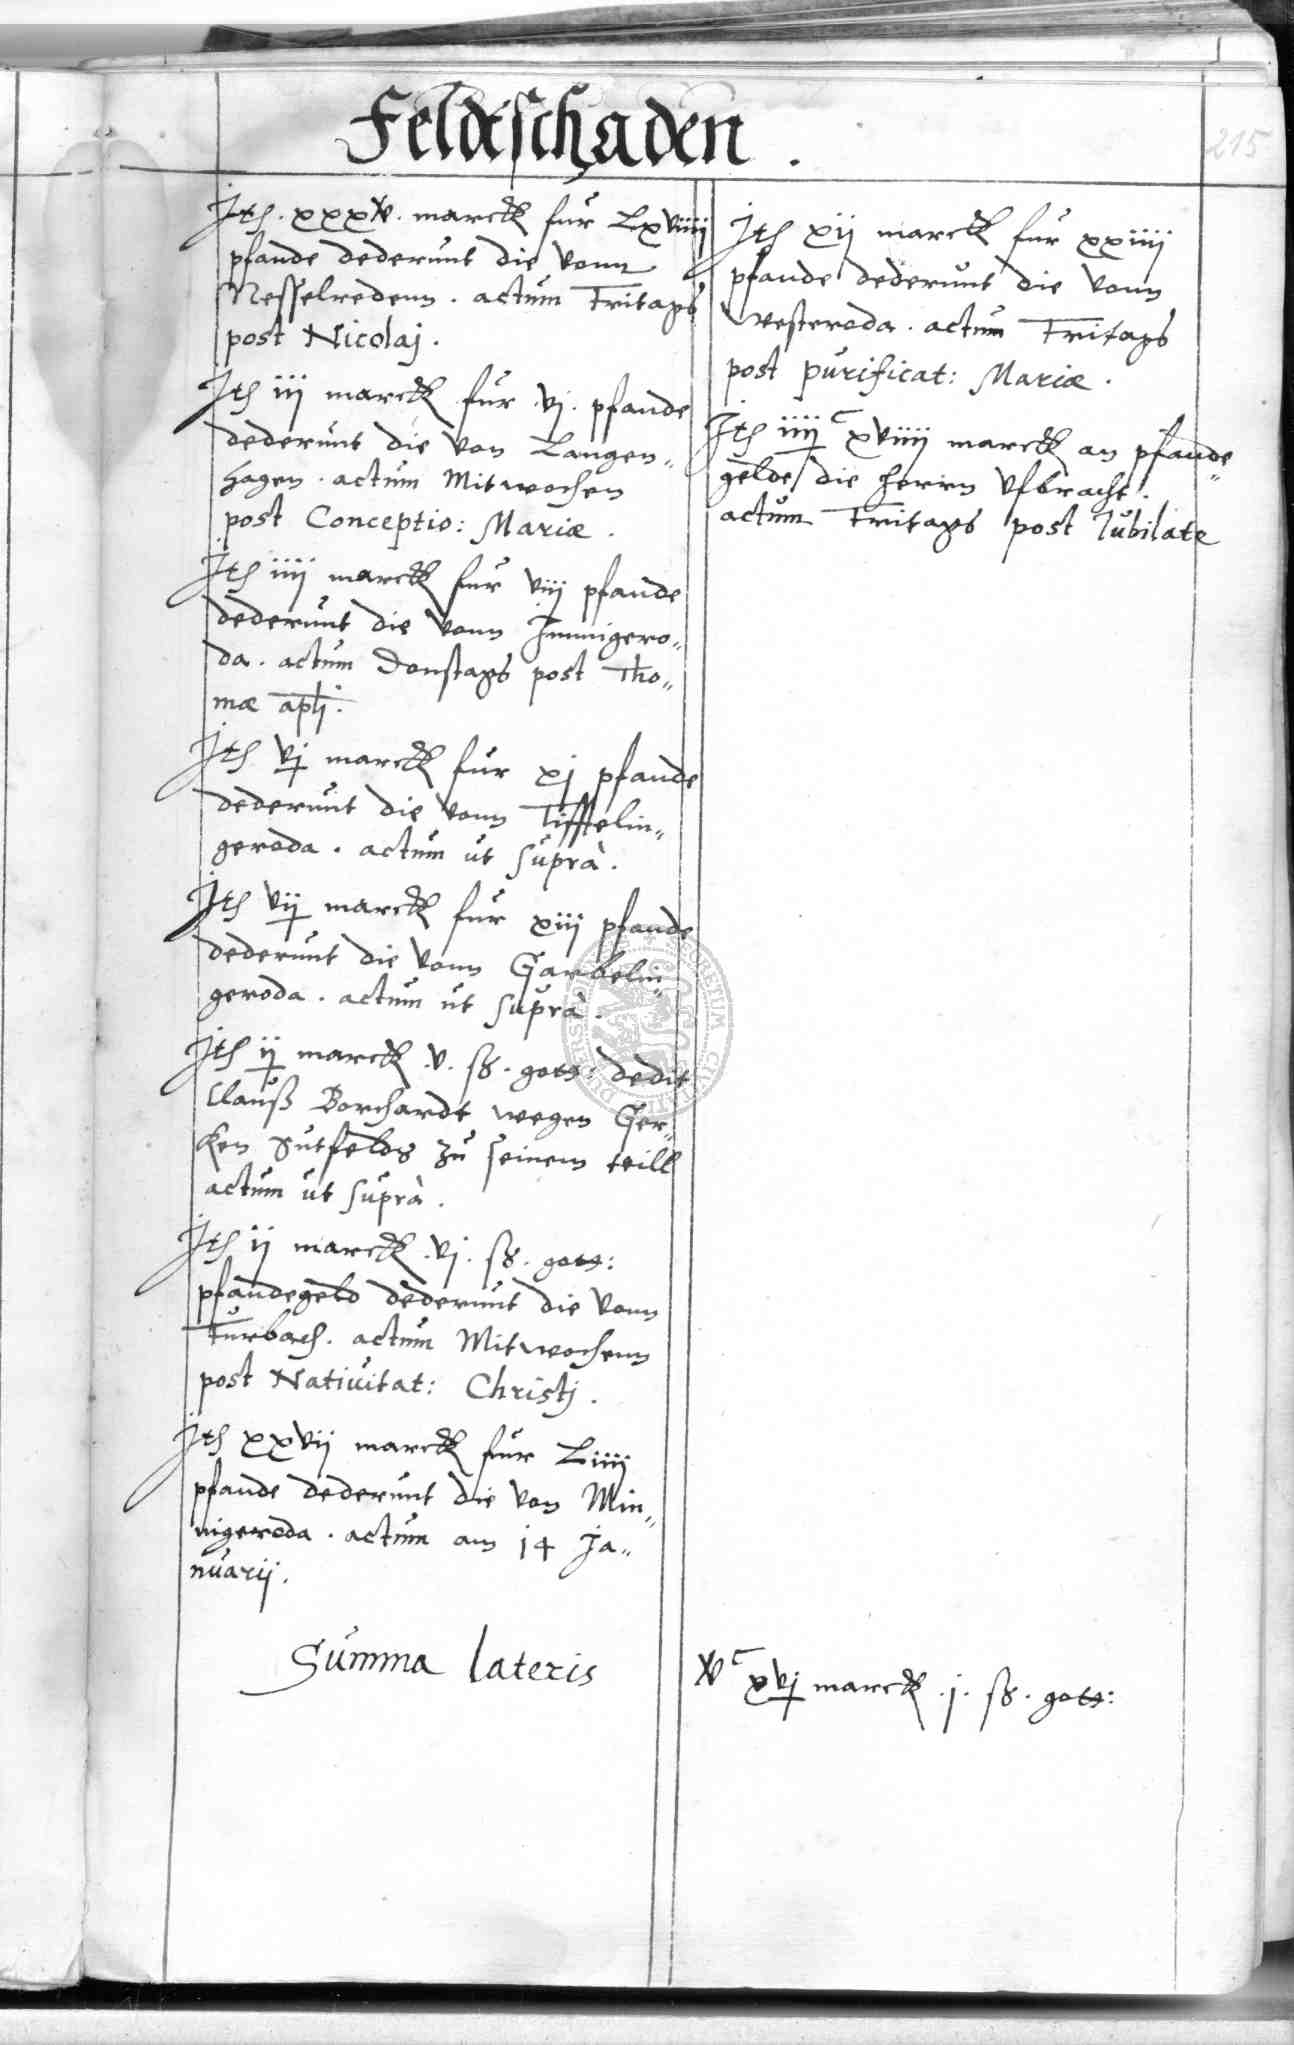 Feldtschaden.
215
Jtem. xxxv. marck fur Lxviiij
pfande dederunt die vonn
Nesselredenn. actum Fritags
post Nicolaj.
Jtem iij marck fur vj. pfande
dederunt die von Langen„
hagen. actum Mitwochen
post Conceptio: Mariæ.
Jtem iiij marck fur viij pfande
dederunt die vonn Jmmigero„
da. actum Donstags post Tho„
mæ apli.
Jtem vj marck fur xj pfande
dederunt die vonn Tifftelin„
geroda. actum ut suprà.
Jtem vij marck fur xiij pfande
dederunt die vonn Garbelin„
geroda. actum ut suprà.
Jtem ij marck .v. ß. gott: dedit
Clauß Borchardt wegen Ger„
ken Sutfelds zu seinem teill
actum ut suprà.
Jtem ij marck .vj. ß. gott:
pfandegeld dederunt die vonn
Furbach. actum Mitwochenn
post Nativitat: Christj.
Jtem xxvij marck fur Liiij
pfande dederunt die von Min„
nigeroda. actum am 14 Ja„
nuarij.
Jtem xij marck fur xxiiij
pfande dederunt die vonn
Westeroda. actum Fritags
post purificat: Mariæ.
Jtem iiij c xviiij marck an pfande„
gelde die herrn ufbracht.
actum Fritags post Jubilate
Summa lateris
v c xvj marck .j. ß. gott: